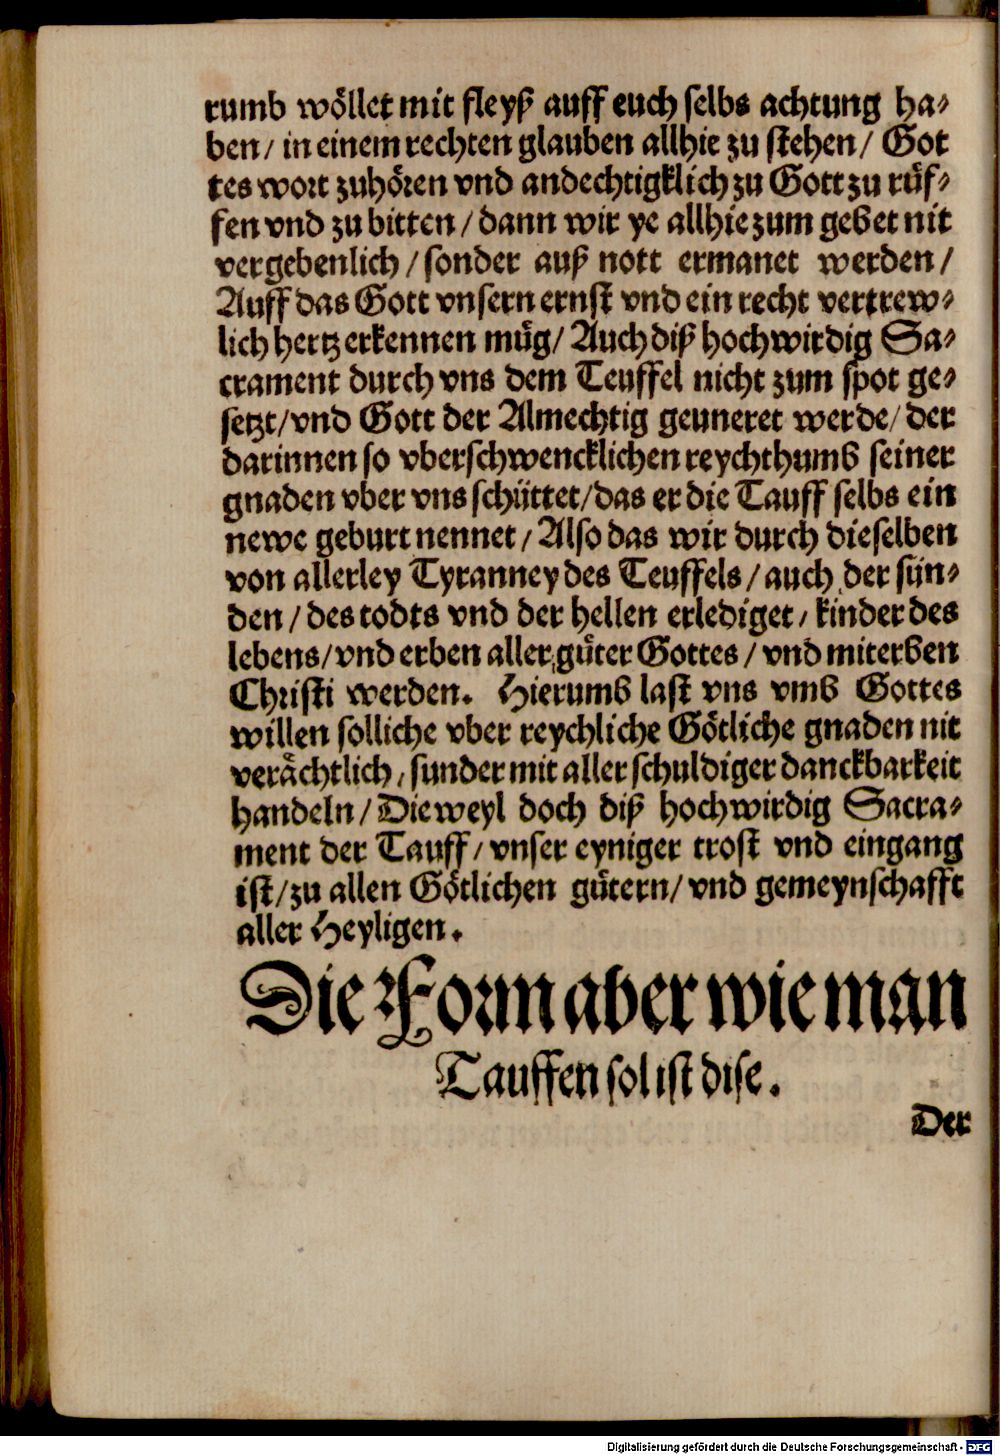 rumb wöllet mit fleyß auff euch selbs achtung ha⸗
ben / in einem rechten glauben allhie zu stehen / Got
tes wort zuhören vnd andechtigklich zu Gott zu rüf⸗
fen vnd zu bitten / dann wir ye allhie zum gebet nit
vergebenlich / sonder auß nott ermanet werden /
Auff das Gott vnsern ernst vnd ein recht vertrew⸗
lich hertz erkennen müg / Auch diß hochwirdig Sa⸗
crament durch vns dem Teuffel nicht zum spot ge⸗
setzt / vnd Gott der Almechtig geuneret werde / der
darinnen so vberschwencklichen reychthumb seiner
gnaden vber vns schüttet / das er die Tauff selbs ein
newe geburt nennet / Also das wir durch dieselben
von allerley Tyranney des Teuffels / auch der sün⸗
den / des todts vnd der hellen erlediget / kinder des
lebens / vnd erben aller güter Gottes / vnd miterben
Christi werden. Hierumb last vns vmb Gottes
willen solliche vber reychliche Götliche gnaden nit
verächtlich / sunder mit aller schuldiger danckbarkeit
handeln / Dieweyl doch diß hochwirdig Sacra⸗
ment der Tauff / vnser eyniger trost vnd eingang
ist / zu allen Götlichen gütern / vnd gemeynschafft
aller Heyligen.
Die Form aber wie man
Tauffen sol ist dise.
Der
Digitalisierung gefördert durch die Deutsche Forschungsgemeinschaft - DFG